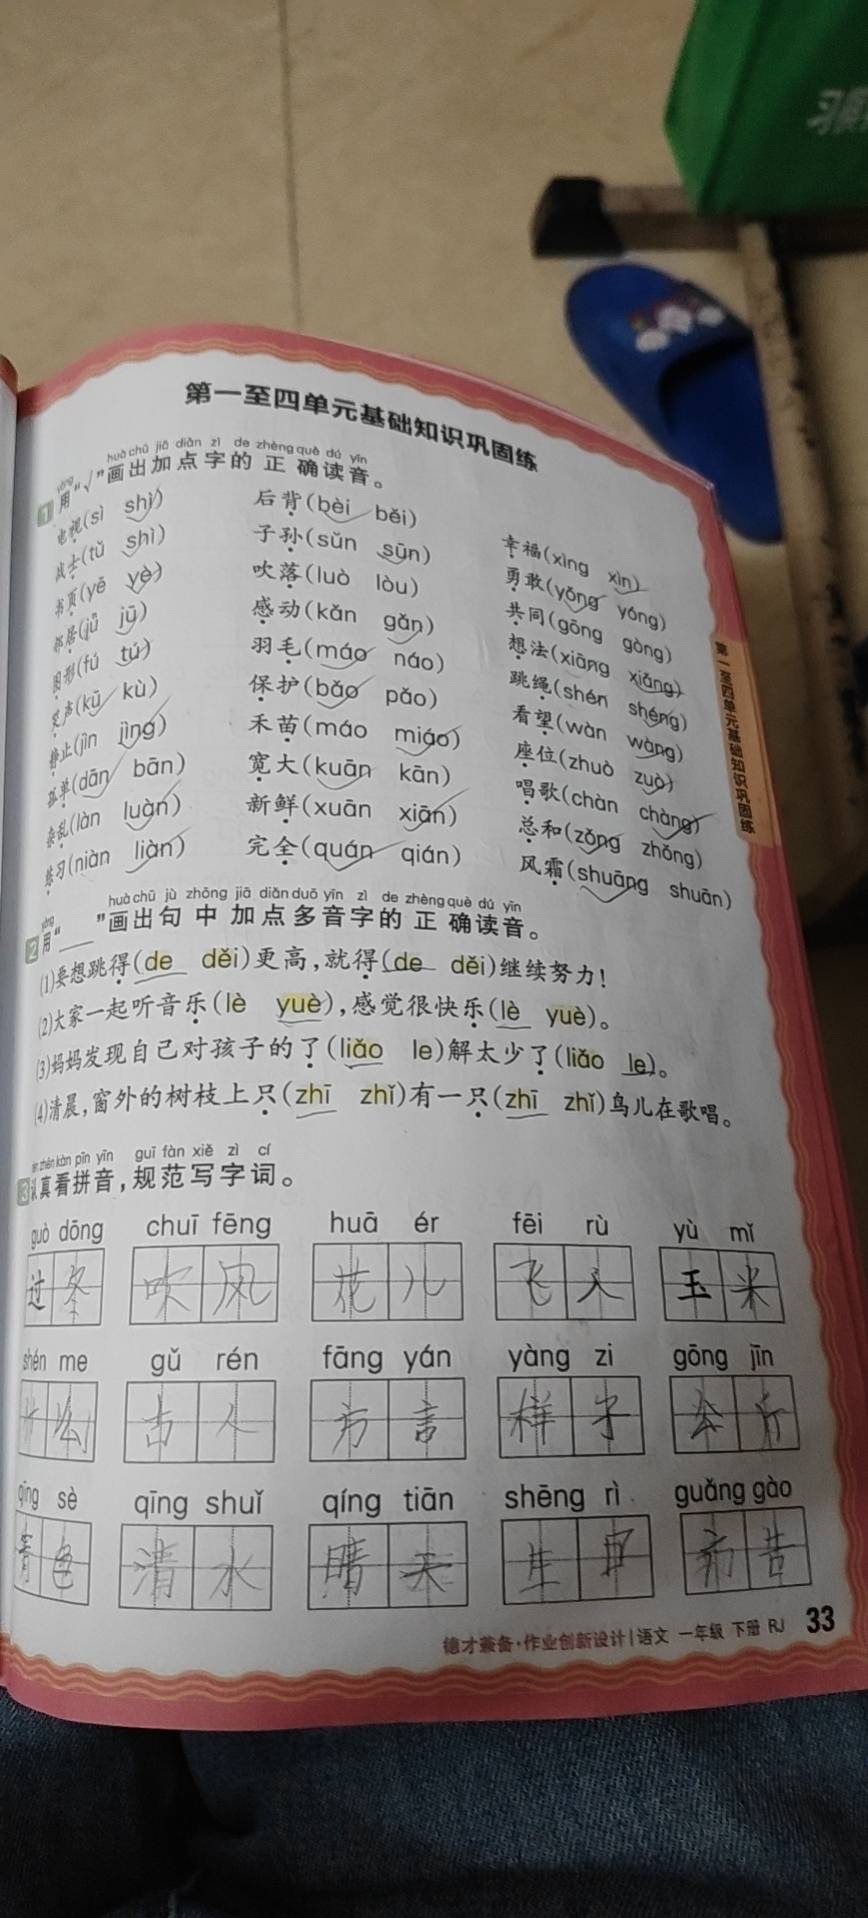 第一至四单元基础知识巩固练
yòng huà chū jiā diǎn zì de zhèng què dú yīn
1 用“√”画出加点字的正确读音。
电视(sì shì) 后背(bèi běi) 幸福(xìng xìn)
战士(tǔ shì) 子孙(sǔn sūn) 勇敢(yǒng yóng)
书页(yē yè) 吹落(luò lòu) 共同(gōng gòng)
邻居(jǔ jū) 感动(kǎn gǎn) 想法(xiāng xiǎng)
图形(fú tú) 羽毛(máo náo) 跳绳(shén shéng)
哭声(kū kù) 保护(bǎo pǎo) 看望(wàn wàng)
静止(jìn jìng) 禾苗(máo miáo) 座位(zhuò zuò)
孤单(dān bān) 宽大(kuān kān) 唱歌(chàn chàng)
杂乱(làn luàn) 新鲜(xuān xiān) 总和(zǒng zhǒng)
练习(niàn liàn) 完全(quán qián) 风霜(shuāng shuān)
yòng huà chū jù zhōng jiā diǎn duō yīn zì de zhèng què dú yīn
2 用“___”画出句中加点多音字的正确读音。
(1)要想跳得(de děi)更高,就得(de děi)继续努力!
(2)大家一起听音乐(lè yuè),感觉很快乐(lè yuè)。
(3)妈妈发现自己对孩子的了(liǎo le)解太少了(liǎo le)。
(4)清晨,窗外的树枝上只(zhī zhǐ)有一只(zhī zhǐ)鸟儿在歌唱。
rèn zhēn kàn pīn yīn guī fàn xiě zì cí
3 认真看拼音,规范写字词。
guò dōng chuī fēng huā ér fēi rù yù mǐ
过 冬 吹 风 花 儿 飞 入 玉 米
shén me gǔ rén fāng yán yàng zi gōng jīn
什 么 古 人 方 言 样 子 公 斤
qīng sè qīng shuǐ qíng tiān shēng rì guǎng gào
青 色 清 水 晴 天 生 日 告
德才兼备·作业创新设计|语文 一年级 下册 RJ 33
第一至四单元基础知识巩固练